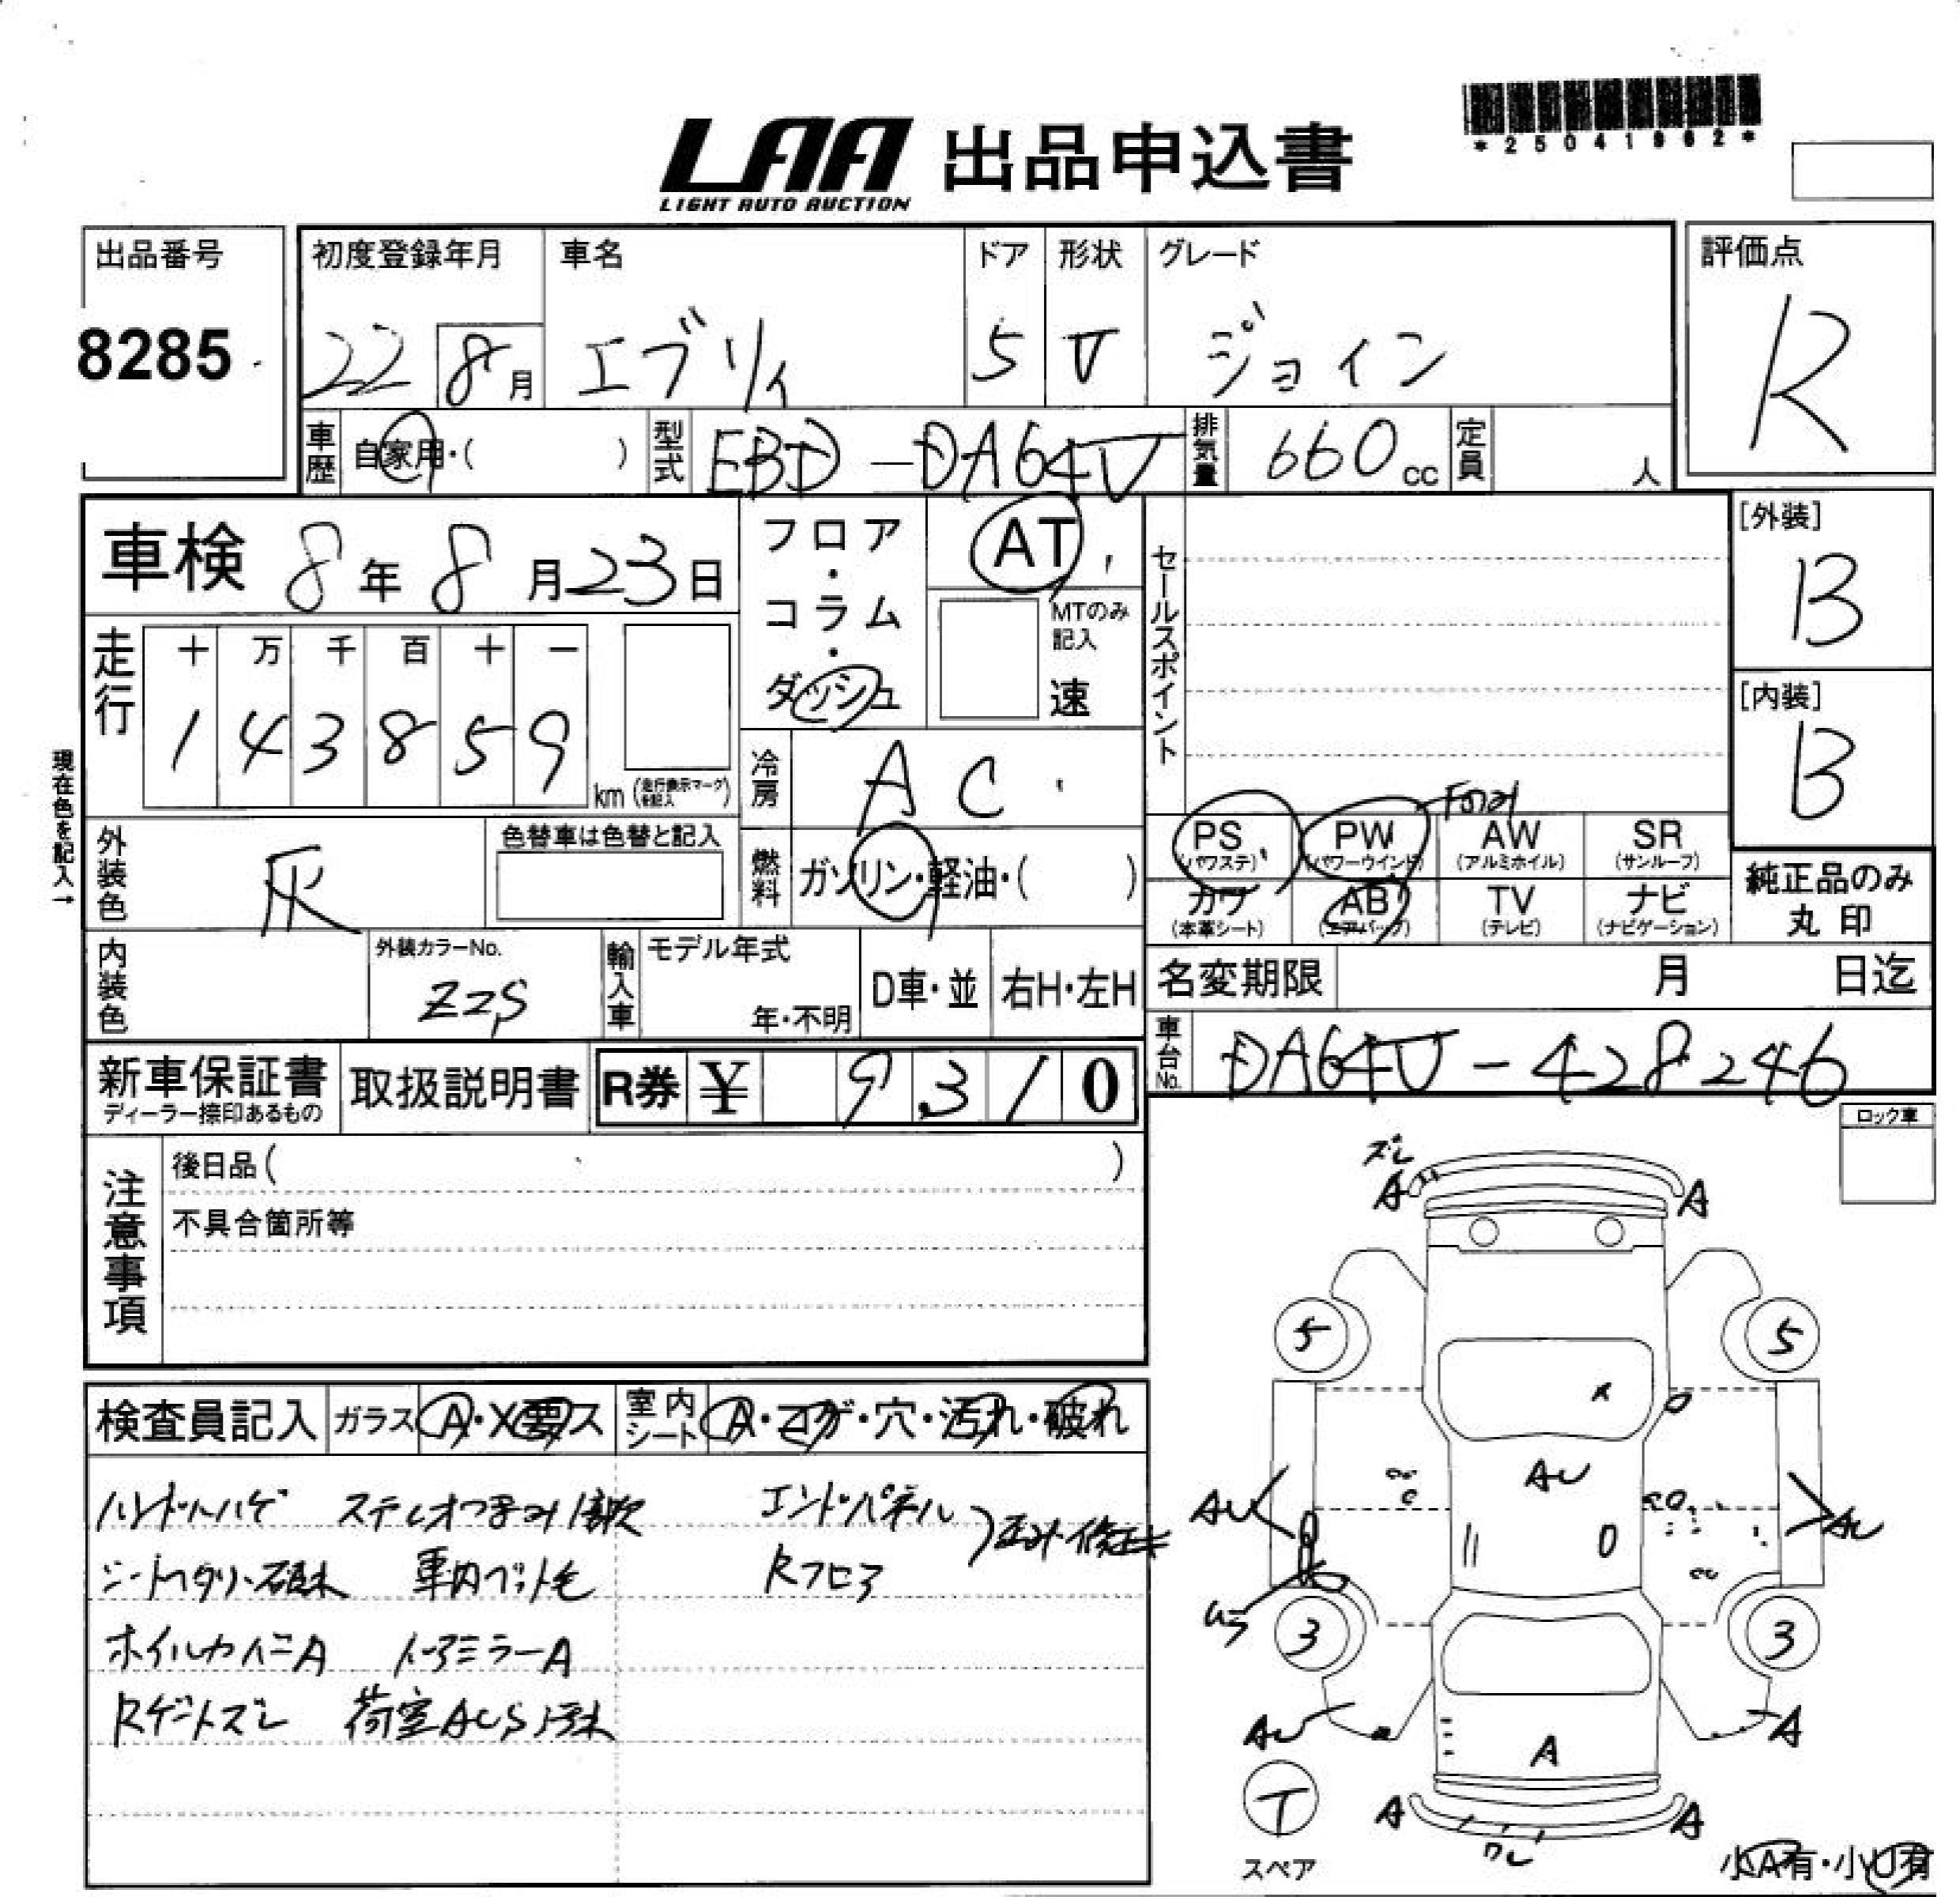 *25041962*
LAA 出品申込書
LIGHT AUTO AUCTION
出品番号
8285
初度登録年月
22 8月
車名
エブリィ
ドア
5
形状
V
グレード
ジョイン
評価点
R
車歴 自家用・( )
型式 EBD-DA64V
排気量 660cc
定員 人
車検 8年8月23日
フロア・コラム・ダッシュ
AT
MTのみ記入
速
セールスポイント
[外装]
B
[内装]
B
走行
十 万 千 百 十 一
1 4 3 8 5 9 km (走行表示マークを記入)
現在色を記入→
冷房 AC
外装色 灰
色替車は色替と記入
燃料 ガソリン・軽油・( )
PS (パワステ)
PW (パワーウインド)
AW (アルミホイル)
SR (サンルーフ)
カワ (本革シート)
AB (エアバッグ)
TV (テレビ)
ナビ (ナビゲーション)
純正品のみ
丸印
内装色
外装カラーNo.
ZZS
輸入車 モデル年式
年・不明
D車・並
右H・左H
名変期限 月 日迄
車台No. DA64V-428246
新車保証書
ディーラー捺印あるもの
取扱説明書
R券 ¥ 9 3 1 0
ロック車
注意事項
後日品( )
不具合箇所等
検査員記入
ガラス A・X要ス
室内シート A・コゲ・穴・汚れ・破れ
ハンドルハゲ ステレオつまみ1ヶ欠
エンドパネル
車内ペット毛
Rフロア
ホイルカバーA ドアミラーA
Rゲートズレ 荷室AUS汚れ
ズレ
A
A
5
5
X
AU
AU
AU
3
3
AU
A
A
T
スペア
A
A
ワレ
小A有・小U有